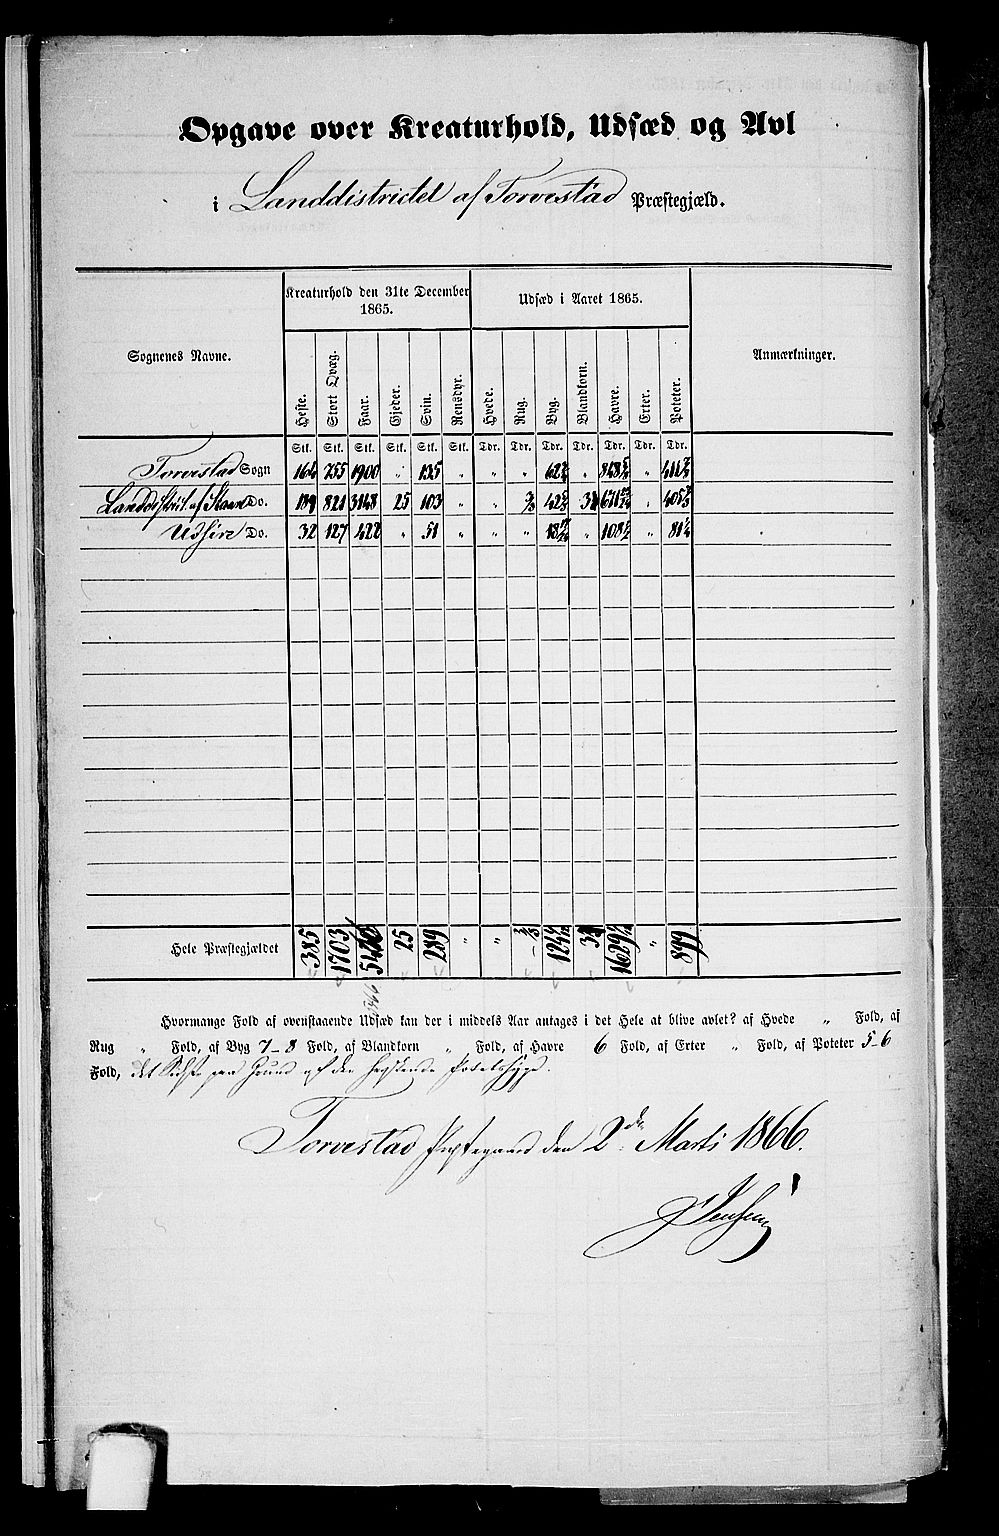 Opgave over Kreaturhold, Udsæd og Avl
i Landdistrictet af Torvestad Præstegjæld.
Kreaturhold den 31te December 1865. Udsæd i Aaret 1865.
Sognenes Navne. Heste. Stort Qvæg. Faar. Gjeder. Svin. Rensdyr. Hvede. Rug. Byg. Blandkorn. Havre. Erter. Poteter. Anmærkninger.
Stk. Stk. Stk. Stk. Stk. Stk. Tdr. Tdr. Tdr. Tdr. Tdr. Tdr. Tdr.
Torvestad Sogn 164 755 1900 „ 135 „ „ „ „ „
Landdistrict. af Do. 189 821 3148 25 103 „ „ „
Udsire Do. 32 127 422 „ 51 „ „ „ „ 108½ „ 81¼
Hele Præstegjældet 385 1703 25 289 „ „ „ 899
Hvormange Fold af ovenstaaende Udsæd kan der i middels Aar antages i det Hele at blive avlet? af Hvede „ Fold, af
Rug „ Fold, af Byg 7–8 Fold, af Blandkorn „ Fold, af Havre 6 Fold, af Erter „ Fold, af Poteter 5–6
Fold, det Sidste paa Grund af den
Torvestad den 2de Marts 1866.